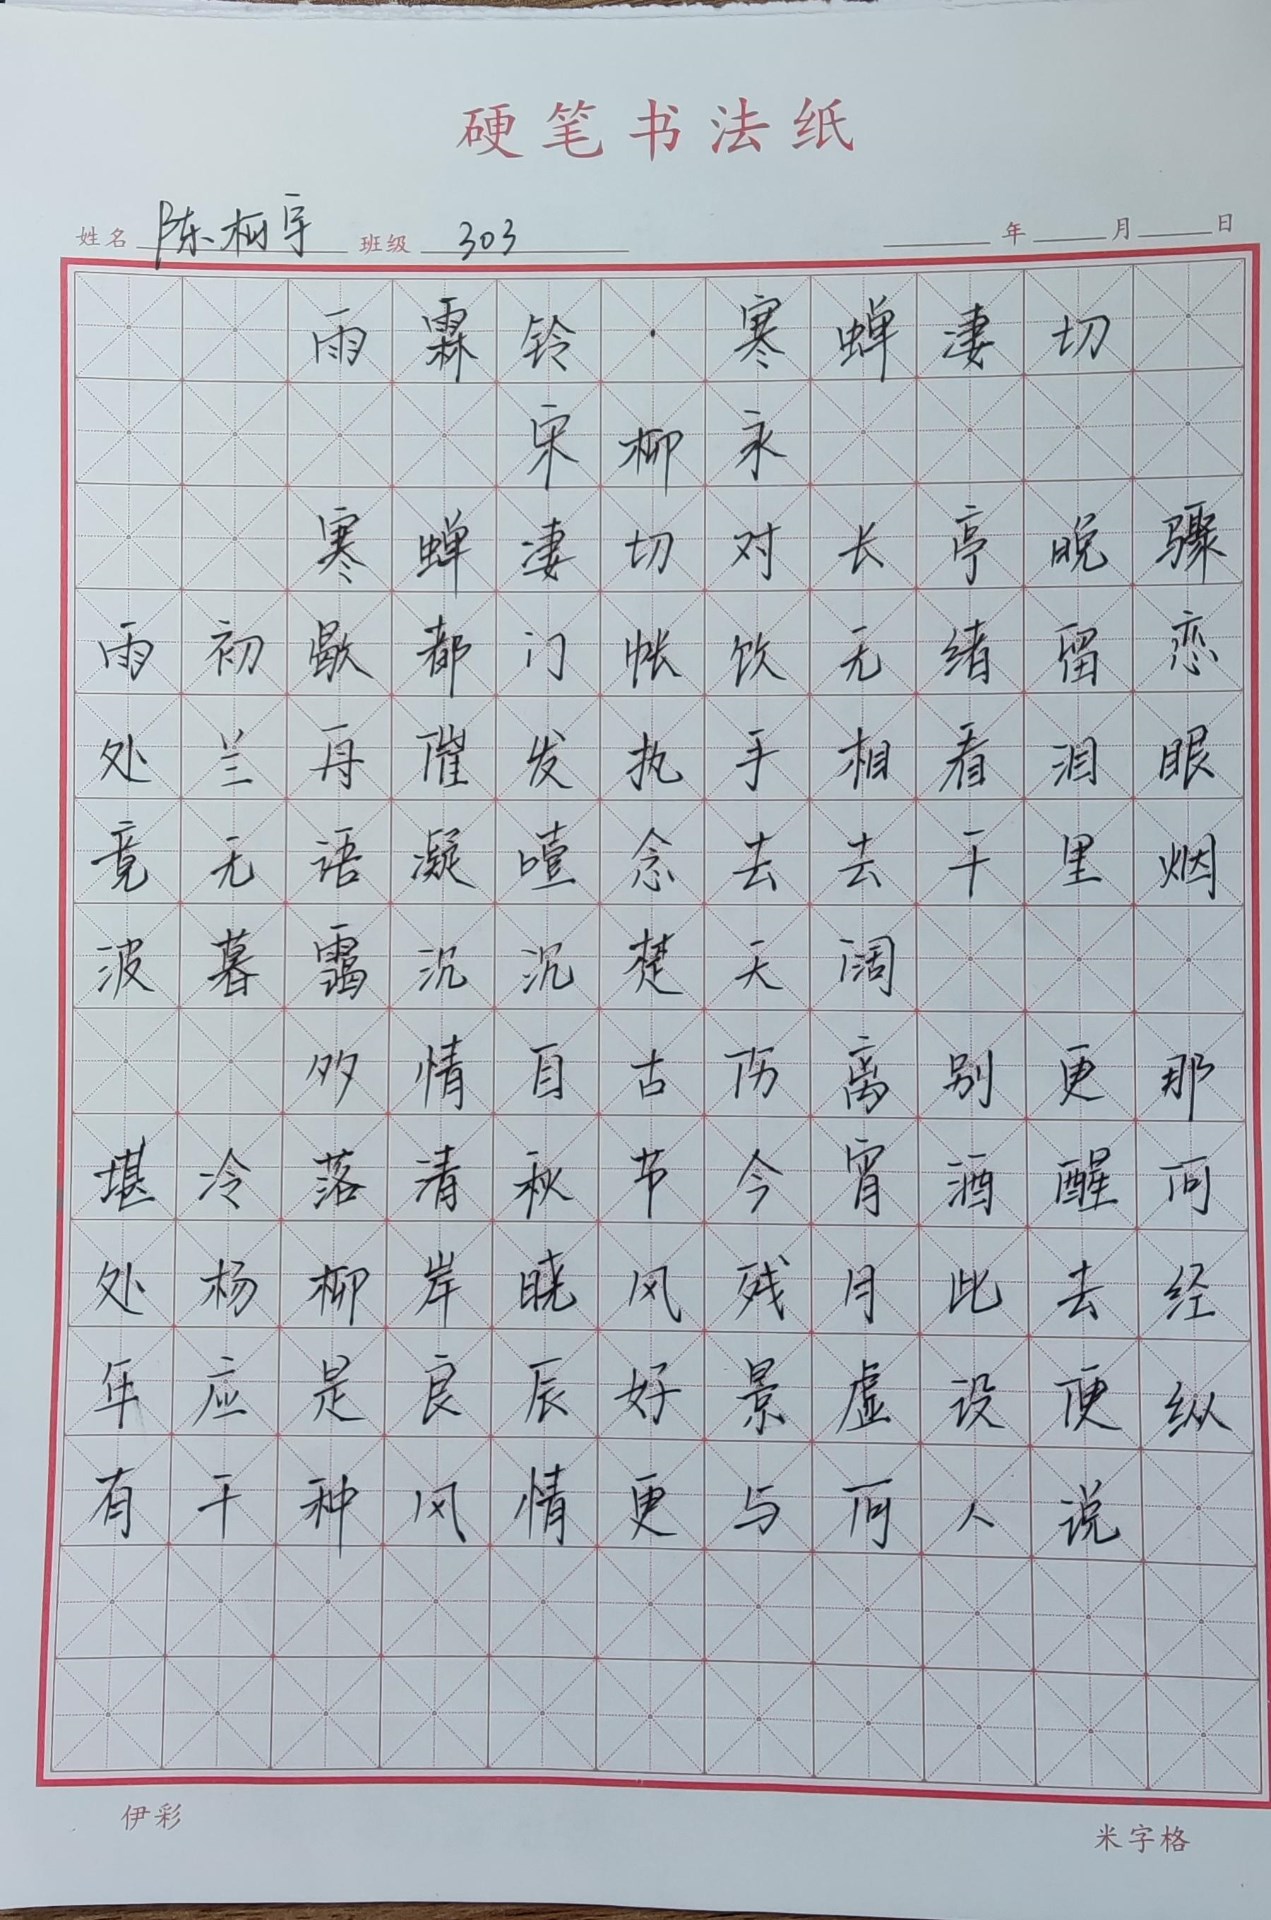 硬笔书法纸
姓名 陈柯宇 班级 303 年 月 日
雨霖铃·寒蝉凄切
宋柳永
寒蝉凄切对长亭晚骤
雨初歇都门帐饮无绪留恋
处兰舟催发执手相看泪眼
竟无语凝噎念去去千里烟
波暮霭沉沉楚天阔
多情自古伤离别更那
堪冷落清秋节今宵酒醒何
处杨柳岸晓风残月此去经
年应是良辰好景虚设便纵
有千种风情更与何人说
伊彩 米字格